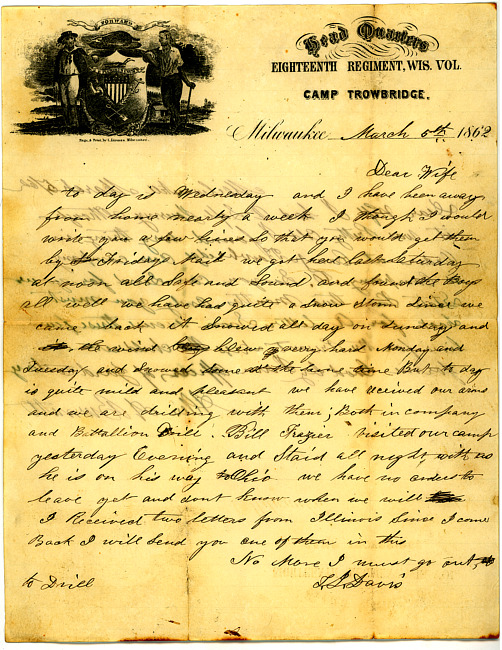 FORWARD
Head Quarters
EIGHTEENTH REGIMENT, WIS. VOL.
CAMP TROWBRIDGE,
Milwaukee March 5th 1862
Dear Wife
to day is Wednesday and I have been away
from home nearly a week I though I would
write you a few lines so that you would get them
by Fridays Mail we got here last Saturday
at noon all Safe and Sound and found the Boys
all well we have had quite a Snow Storm Since we
came back it Snowed all day on Sunday and
the wind blew very hard Monday and
Tuesday and Snowed some at the same time But to day
is quite mild and pleasant we have recived our arms
and we are drilling with them; Both in company
and Battallion Drill. Bill Frazier visited our camp
yesterday Evening and Staid all night with us
he is on his way to Ohio we have no orders to
leave yet and dont know when we will
I Received two letters from Illinois Since I come
Back I will Send you one of them in this
No More I must go out
to Drill
Davis